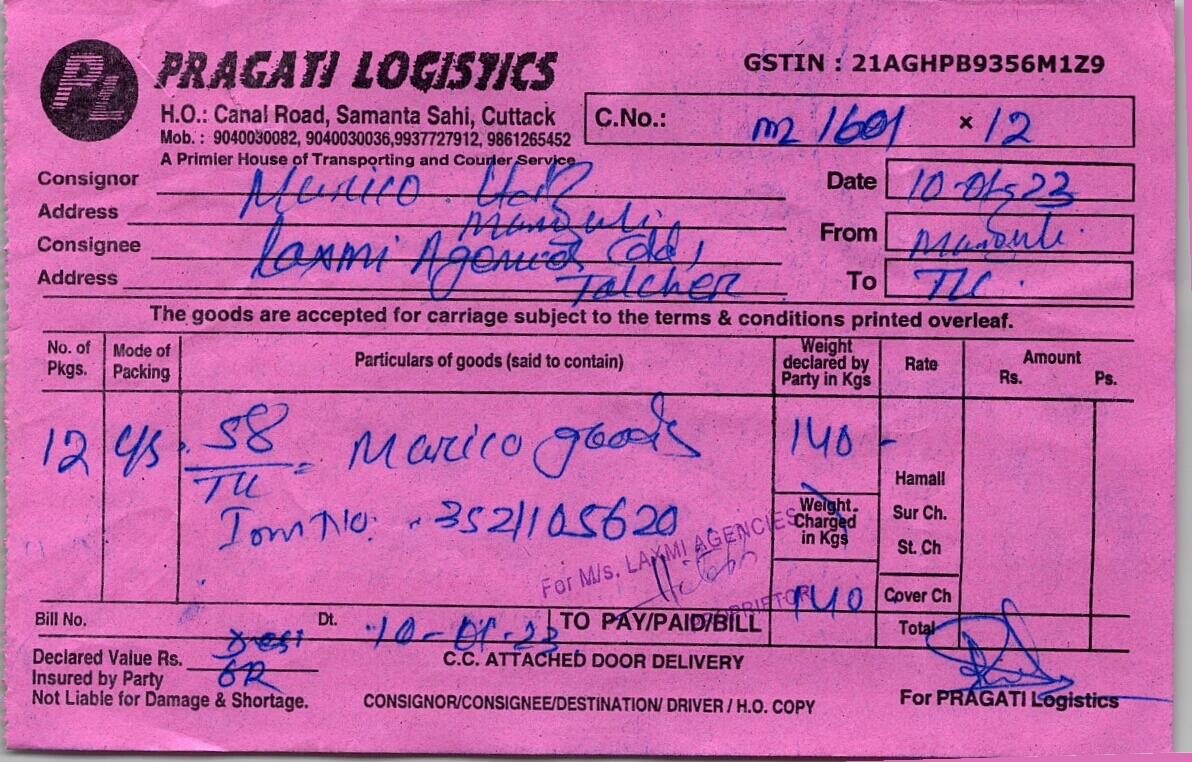 PL
PRAGATI LOGISTICS
GSTIN : 21AGHPB9356M1Z9
H.O.: Canal Road, Samanta Sahi, Cuttack
Mob. : 9040030082, 9040030036,9937727912, 9861265452
A Primier House of Transporting and Courier Service
C.No.: m2 1601 x 12
Consignor Marico
Date 10-01-23
Address Manguli
Consignee Laxmi Agencies
From Manguli
Address Talcher
To TLC
The goods are accepted for carriage subject to the terms & conditions printed overleaf.
No. of Pkgs. Mode of Packing Particulars of goods (said to contain) Weight declared by Party in Kgs Rate Amount Rs. Ps.
12 C/s 58 Marico goods 140
TLC
Hamall
Inv No: 352/105620
Weight Charged in Kgs
Sur Ch.
St. Ch
For M/s. LAXMI AGENCIES
PROPRIETOR
140
Cover Ch
Bill No. Dt. 10-01-23 TO PAY/PAID/BILL
Total
Declared Value Rs.
C.C. ATTACHED DOOR DELIVERY
Insured by Party
Not Liable for Damage & Shortage.
CONSIGNOR/CONSIGNEE/DESTINATION/ DRIVER / H.O. COPY
For PRAGATI Logistics